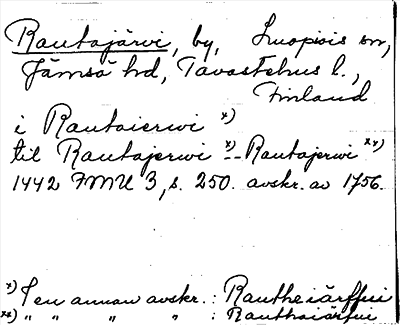 Rautajärvi, by, Luopiois sn,
Jämsä hd, Tavastehus l.,
Finland
i Rautaierwi x)
til Rautajerwi x) -- Rautajerwi xx)
1442 FMU 3, s. 250. avskr. av 1756.
x) I en annan avskr.: Rautheiärffui
xx) " " " " : Rauthaiärfui